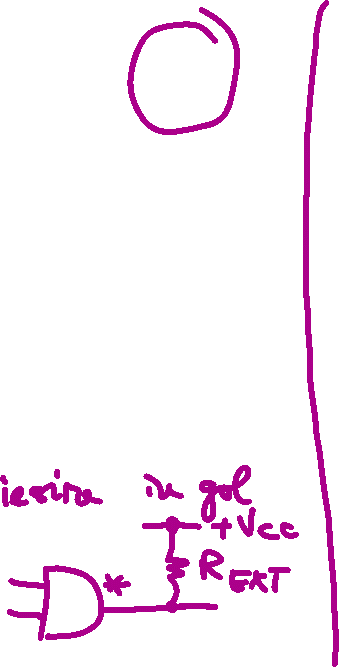 iesire in gol
+Vcc
*
REXT